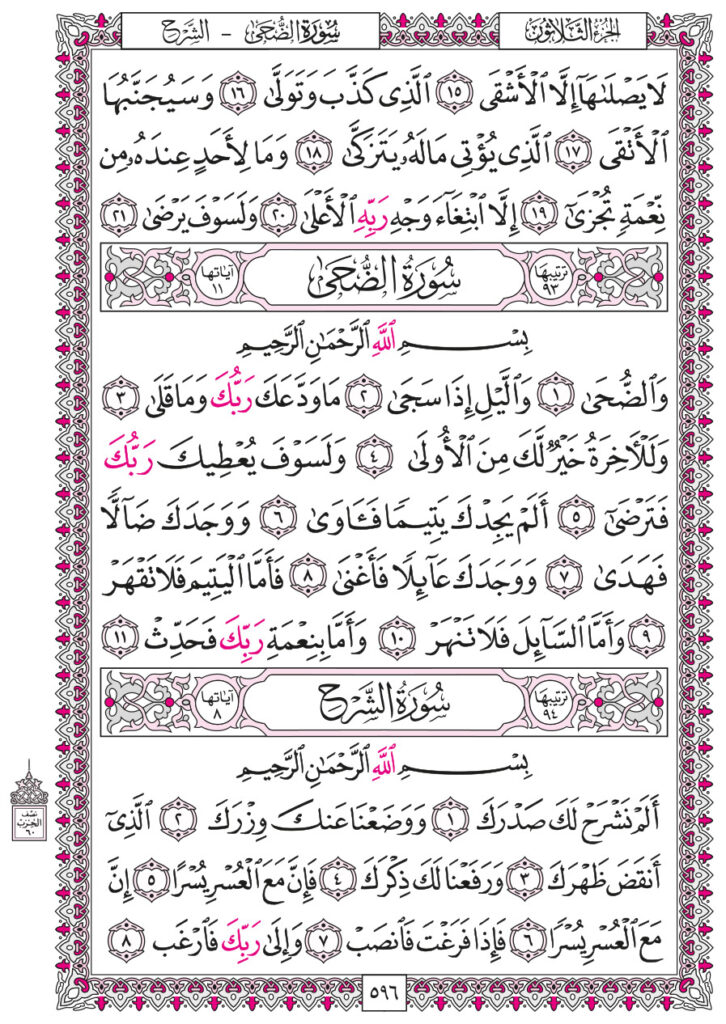 الجزء الثلاثون
سورة الضحى - الشرح
لَا يَصْلَىٰهَآ إِلَّا ٱلْأَشْقَى ١٥ ٱلَّذِى كَذَّبَ وَتَوَلَّىٰ ١٦ وَسَيُجَنَّبُهَا
ٱلْأَتْقَى ١٧ ٱلَّذِى يُؤْتِى مَالَهُۥ يَتَزَكَّىٰ ١٨ وَمَا لِأَحَدٍ عِندَهُۥ مِن
نِّعْمَةٍ تُجْزَىٰٓ ١٩ إِلَّا ٱبْتِغَآءَ وَجْهِ رَبِّهِ ٱلْأَعْلَىٰ ٢٠ وَلَسَوْفَ يَرْضَىٰ ٢١
ترتيبها ٩٣ سُورَةُ الضُّحَىٰ آياتها ١١
بِسْمِ ٱللَّهِ ٱلرَّحْمَٰنِ ٱلرَّحِيمِ
وَٱلضُّحَىٰ ١ وَٱلَّيْلِ إِذَا سَجَىٰ ٢ مَا وَدَّعَكَ رَبُّكَ وَمَا قَلَىٰ ٣
وَلَلْءَاخِرَةُ خَيْرٌ لَّكَ مِنَ ٱلْأُولَىٰ ٤ وَلَسَوْفَ يُعْطِيكَ رَبُّكَ
فَتَرْضَىٰٓ ٥ أَلَمْ يَجِدْكَ يَتِيمًا فَـَٔاوَىٰ ٦ وَوَجَدَكَ ضَآلًّا
فَهَدَىٰ ٧ وَوَجَدَكَ عَآئِلًا فَأَغْنَىٰ ٨ فَأَمَّا ٱلْيَتِيمَ فَلَا تَقْهَرْ
٩ وَأَمَّا ٱلسَّآئِلَ فَلَا تَنْهَرْ ١٠ وَأَمَّا بِنِعْمَةِ رَبِّكَ فَحَدِّثْ ١١
ترتيبها ٩٤ سُورَةُ الشَّرْحِ آياتها ٨
بِسْمِ ٱللَّهِ ٱلرَّحْمَٰنِ ٱلرَّحِيمِ
أَلَمْ نَشْرَحْ لَكَ صَدْرَكَ ١ وَوَضَعْنَا عَنكَ وِزْرَكَ ٢ ٱلَّذِىٓ
أَنقَضَ ظَهْرَكَ ٣ وَرَفَعْنَا لَكَ ذِكْرَكَ ٤ فَإِنَّ مَعَ ٱلْعُسْرِ يُسْرًا ٥ إِنَّ
مَعَ ٱلْعُسْرِ يُسْرًا ٦ فَإِذَا فَرَغْتَ فَٱنصَبْ ٧ وَإِلَىٰ رَبِّكَ فَٱرْغَب ٨
نصف
الحزب
٦٠
٥٩٦